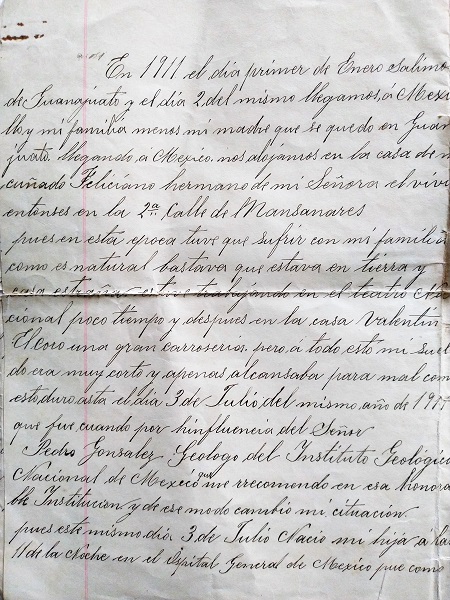 En 1911 el dia primer de Enero Salimo
de Guanajuato y el dia 2 del mismo llegamos, á Mexi
Yo, y mi familia menos mi madre que se quedo en Guan
juato. llegando, á Mexico, nos alojamos en la casa de m
cuñado Feliciano hermano de mi Señora el vivi
entonses en la 2a. Calle de Mansanares
pues en esta epoca tuve que sufrir con mi familia
como es natural bastava que estava en tierra y
casa estraña estuve trabajando en el teatro Na
cional poco tiempo y despues en la casa Valentin
Elcoro una gran carroseria, pero, á todo esto mi suel
do era muy corto y apenas, alcansaba para mal com
esto, duro, asta el dia 3 de Julio, del mismo, año de 1911
que fue, cuando por hinfluencia del Señor
Pedro Gonsalez Geologo del Instituto Geológico
Nacional de Mexico que me recomendo en esa honora
ble Institucion y de ese modo cambio mi, cituación
pues este mismo, dia 3 de Julio Nacio mi hija á las
11 de la Noche en el Ospital General de Mexico pue como